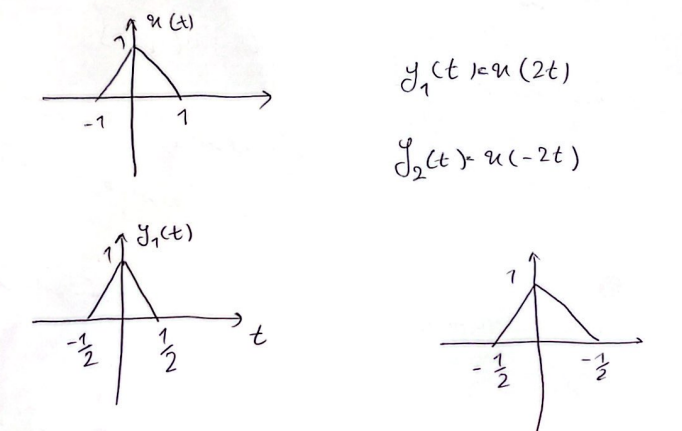 x(t)
1
-1 1
y₁(t)=x(2t)
y₂(t)=x(-2t)
y₁(t)
1
-1/2 1/2 t
1
-1/2 -1/2